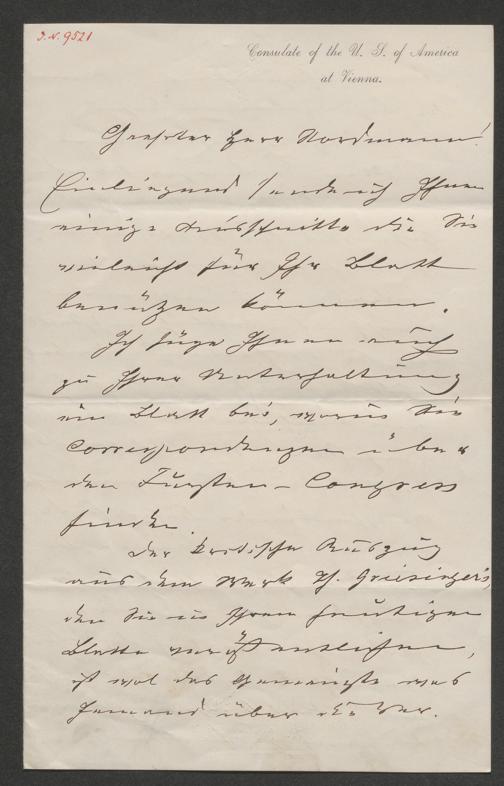 J. N. 9521
Consulate of the U. S. of America
at Vienna.
Geehrter Herr Nordmann!
Einliegend sende ich Ihnen
einige Ausschnitte die Sie
vieleicht für Ihr Blatt
benützen können.
Ich füge Ihnen auch
zu Ihrer Unterhaltung
ein Blatt bei, worin Sie
Correspondenzen über
den Fürsten-Congress
finden.
Der kritische Auszug
aus dem Werk Th. Griesinger's,
den Sie in Ihrem heutigen
Blatte veröffentlichen,
ist wol das Gemeinste was
Jemand über